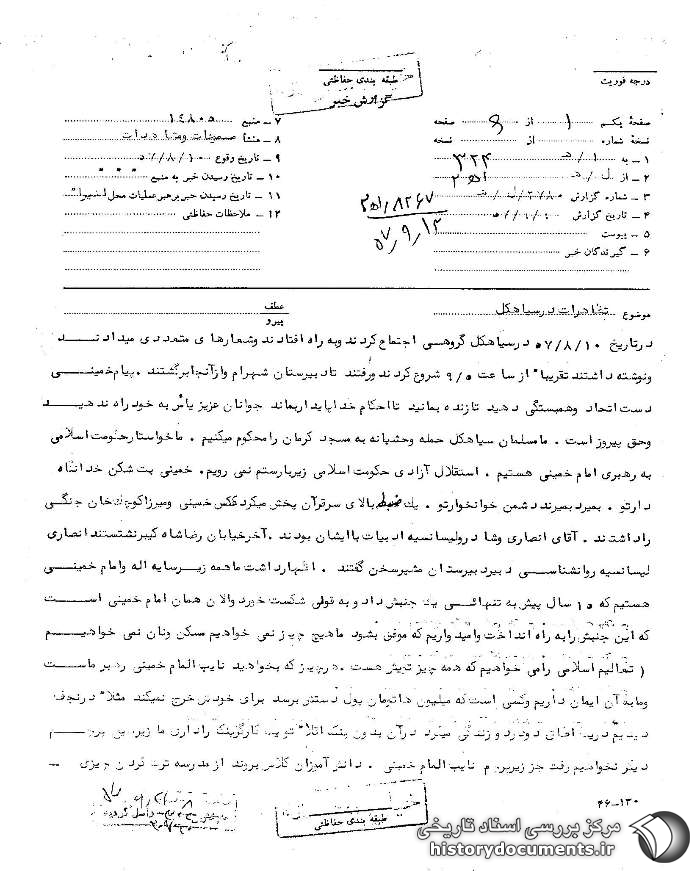 طبقه بندی حفاظتی
گزارش خبر
درجه فوریت
صفحهٔ یکم ۱ از صفحه
نسخهٔ شماره از نسخه
۱ ـ به ۳۲۴
۲ ـ از
۳ ـ شماره گزارش
۴ ـ تاریخ گزارش
۵ ـ پیوست
۶ ـ گیرندگان خبر
۷ ـ منبع ۱۴۸۰۵
۸ ـ منشأ مسموعات ومشاهدات
۹ ـ تاریخ وقوع ۵۷/۸/۱۰
۱۰ ـ تاریخ رسیدن خبر به منبع
۱۱ ـ تاریخ رسیدن خبر برهبر عملیات محل
۱۲ ـ ملاحظات حفاظتی
۵۷٫۹٫۱۲
موضوع تظاهرات درسیاهکل
عطف
پیرو
درتاریخ ۵۷/۸/۱۰ درسیاهکل گروهی اجتماع کردند وبه راه افتادند وشعارهای متعددی میدادند
ونوشته داشتند تقریبا" از ساعت ۹/۵ شروع کردند ورفتند تادبیرستان شهرام وازآنجابرگشتند . پیام خمینی
دست اتحاد وهمبستگی دهید تازنده بمانید تااحکام خداپایداربماند جوانان عزیز یأس به خود راه ندهید
وحق پیروز است . مامسلمان سیاهکل حمله وحشیانه به مسجد کرمان رامحکوم میکنیم . ماخواستارحکومت اسلامی
به رهبری امام خمینی هستیم . استقلال آزادی حکومت اسلامی زیربارستم نمی رویم . خمینی بت شکن خدانگاه
دارتو . بمیرد بمیرند دشمن خوانخوارتو . یك ضبط بالای سرقرآن پخش میکرد عکس خمینی ومیرزاکوچك خان جنگلی
راداشتند . آقای انصاری وشادرولیسانسیه ادبیات باایشان بودند .آخرخیابان رضاشاه کبیرنشستند انصاری
لیسانسیه روانشناسی دبیردبیرستان مشیرسخن گفتند . اظهارداشت ماهمه زیرسایه اله وامام خمینی
هستیم که ۱۵ سال پیش به تنهائی یك جنبش داد و به قولی شکست خورد والان همان امام خمینی است
که این جنبش رابه راه انداخت وامیدواریم که موفق بشود ماهیچ چیز نمی خواهیم مسکن ونان نمی خواهیم
( تعالیم اسلامی رامی خواهیم که همه چیز تویش هست . هرچیز که بخواهید نایب الامام خمینی رهبر ماست
ومابه آن ایمان داریم وکسی است که میلیون هاتومان پول دستش برسد برای خودش خرج نمیکند مثلا" درنجف
دیدیم دریك اطاق زندگی میکرد درآن بدون پنکه
دیگر نخواهیم رفت جز زیرپرچم نایب الامام خمینی . دانش آموزان کلاس بروند از مدرسه ترك کردن چیزی
۴۶-۱۳۰
طبقه بندی حفاظتی
مرکز بررسی اسناد تاریخی
historydocuments.ir